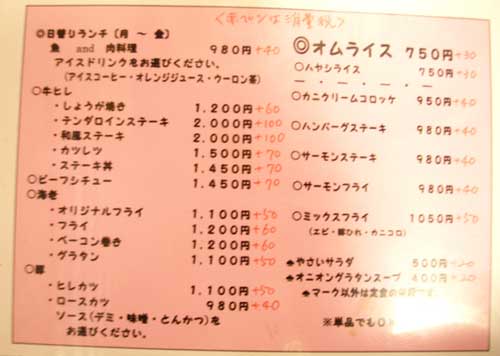 <赤ペンは消費税>
◎日替りランチ〔月 ～ 金〕
魚 and 肉料理 980円+40
アイスドリンクをお選びください。
(アイスコーヒー・オレンジジュース・ウーロン茶)
○牛ヒレ
・しょうが焼き 1.200円+60
・テンダロインステーキ 2.000円+100
・和風ステーキ 2.000円+100
・カツレツ 1.500円+70
・ステーキ丼 1.450円+70
○ビーフシチュー 1.450円+70
○海老
・オリジナルフライ 1.100円+50
・フライ 1.200円+60
・ベーコン巻き 1.200円+60
・グラタン 1.100円+50
○豚
・ヒレカツ 1.100円+50
・ロースカツ 980円+40
ソース(デミ・味噌・とんかつ)を
お選びください。
◎オムライス 750円+30
○ハヤシライス 750円+30
○カニクリームコロッケ 950円+40
○ハンバーグステーキ 980円+40
○サーモンステーキ 980円+40
○サーモンフライ 980円+40
○ミックスフライ 1050円+50
(エビ・豚ひれ・カニコロ)
♣やさいサラダ 500円+20
♣オニオングラタンスープ 400円+20
♣マーク以外は定食の
※単品でもO